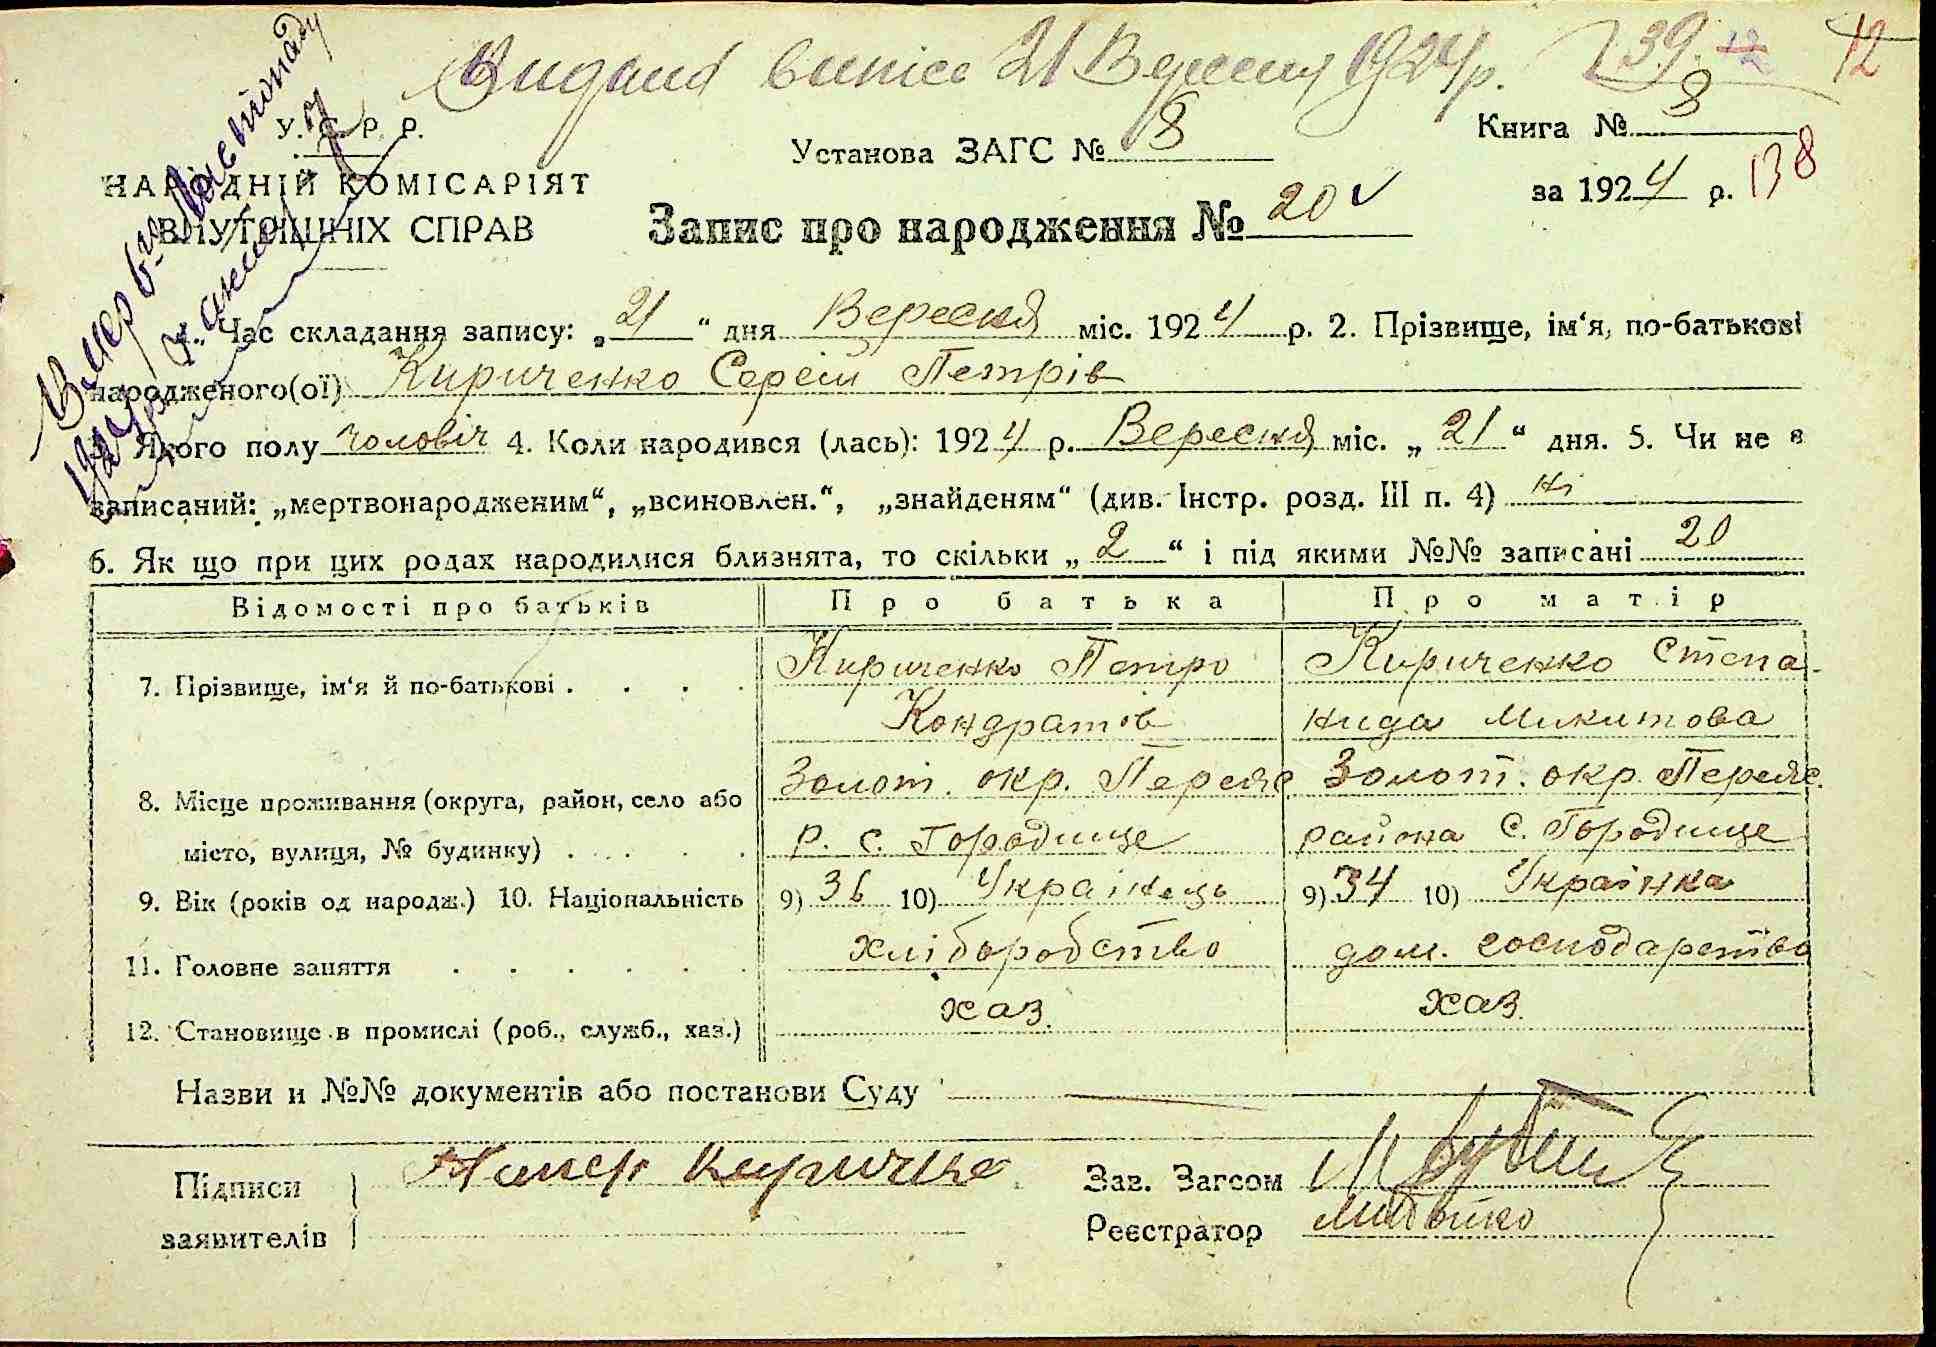 Видана виписс 21 Вересня 1924 р. 139. 12 12
Вмер 6го листопаду
1924 року
У. С. Р. Р.
НАРОДНІЙ КОМІСАРІЯТ
ВНУТРІШНІХ СПРАВ
Установа ЗАГС № 8
Книга № 8
за 1924 р. 138
Запис про народження № 20
1. Час складання запису: „21“ дня Вересня міс. 1924 р. 2. Прізвище, ім‘я, по-батькові
народженого(ої) Кириченко Сергій Петрів
3. Якого полу чоловіч 4. Коли народився (лась): 1924 р. Вересня міс. „21“ дня. 5. Чи не є
записаний: „мертвонародженим“, „всиновлен.“, „знайденям“ (див. Інстр. розд. III п. 4) ні
6. Як що при цих родах народилися близнята, то скільки „2“ і під якими №№ записані 20
Відомості про батьків Про батька Про матір
7. Прізвище, ім‘я й по-батькові . . . . Кириченко Петро Кириченко Степа-
Кондратів нида Микитова
8. Місце проживання (округа, район, село або Золот. окр. Переяс Золот. окр. Переяс.
місто, вулиця, № будинку) . . . . Р. с. Городище района С. Городище
9. Вік (років од народж.) 10. Національність 9) 36 10) Українець 9) 34 10) Українка
11. Головне заняття . . . . . . хліборобство дом. господарство
12. Становище в промислі (роб., служб., хаз.) хаз. хаз.
Назви и №№ документів або постанови Суду
Підписи Кириченко Зав. Загсом
заявителів Реєстратор